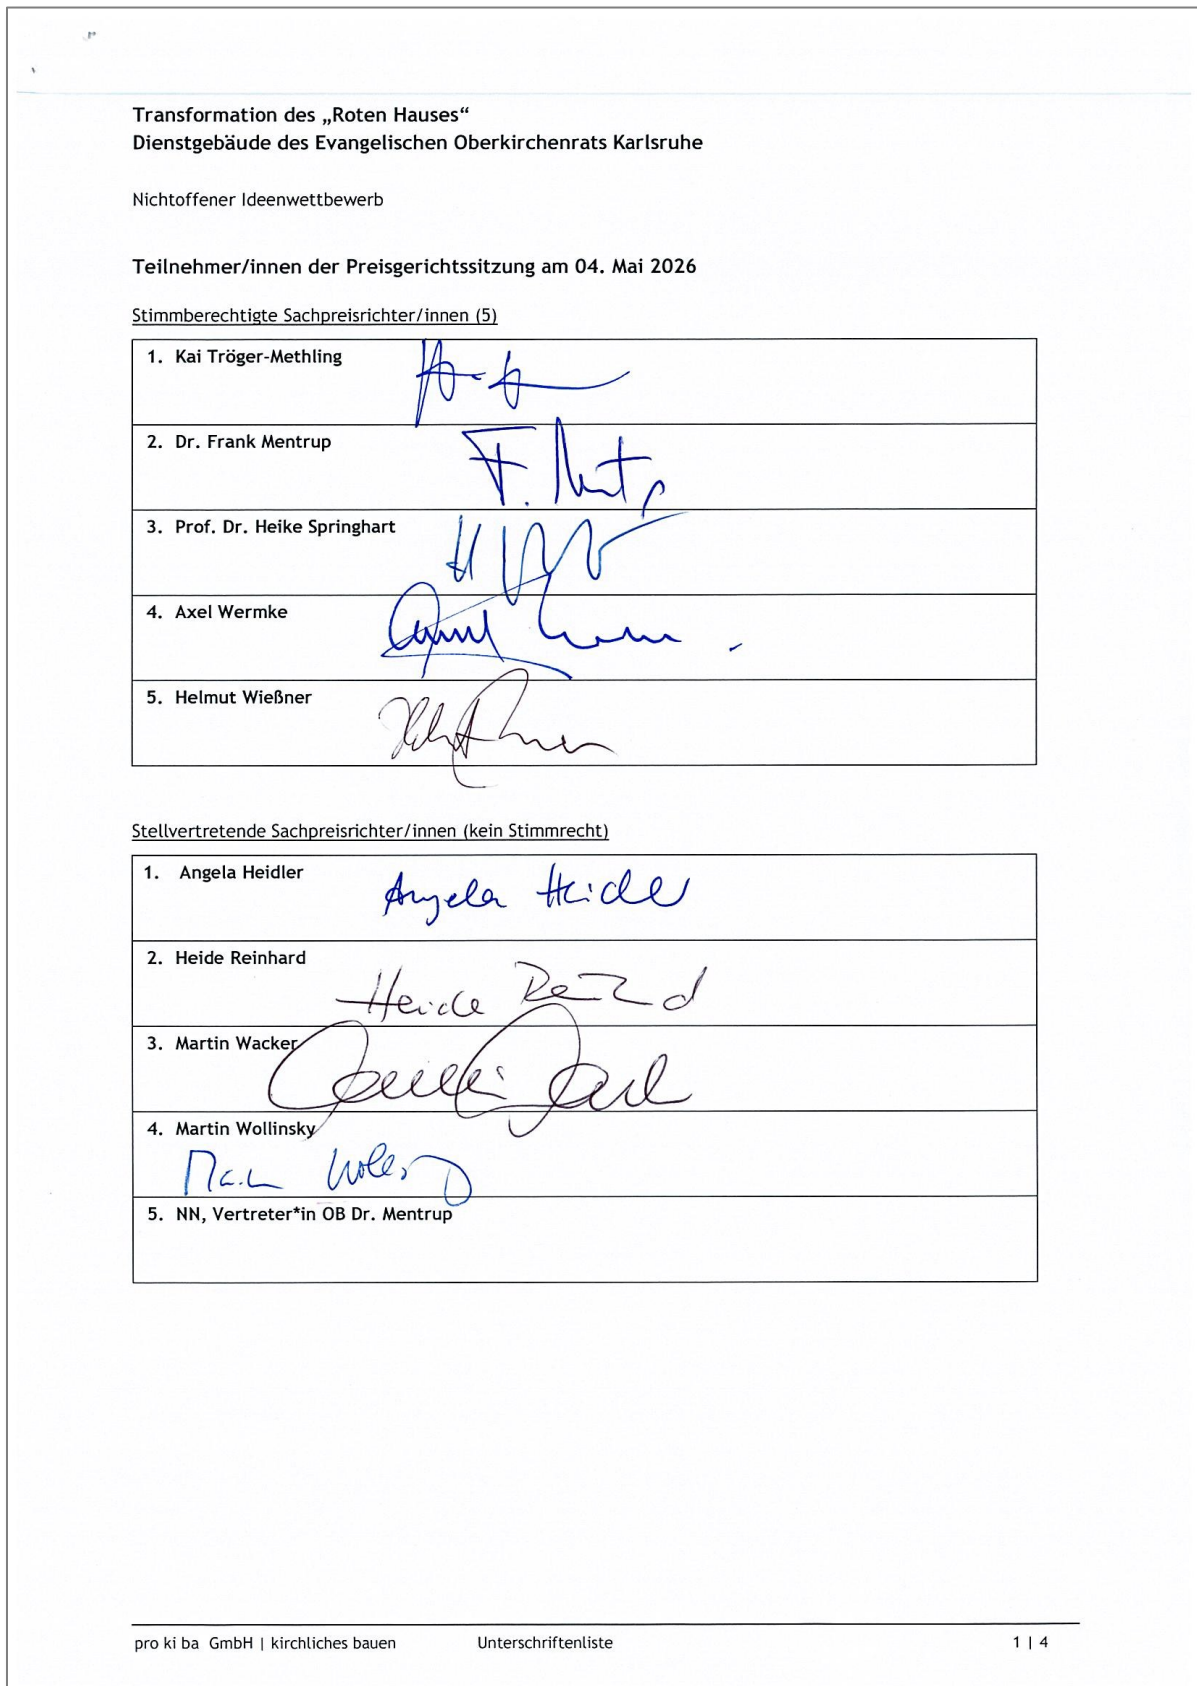 Transformation des „Roten Hauses“
Dienstgebäude des Evangelischen Oberkirchenrats Karlsruhe
Nichtoffener Ideenwettbewerb
Teilnehmer/innen der Preisgerichtssitzung am 04. Mai 2026
Stimmberechtigte Sachpreisrichter/innen (5)
1. Kai Tröger-Methling
2. Dr. Frank Mentrup
F.
3. Prof. Dr. Heike Springhart
4. Axel Wermke
5. Helmut Wießner
Stellvertretende Sachpreisrichter/innen (kein Stimmrecht)
1. Angela Heidler
Angela
2. Heide Reinhard
Heide
3. Martin Wacker
4. Martin Wollinsky
5. NN, Vertreter*in OB Dr. Mentrup
pro ki ba GmbH | kirchliches bauen Unterschriftenliste 1 | 4